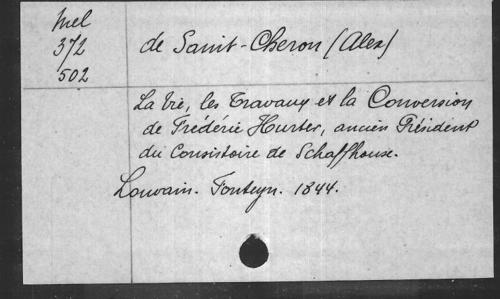 Mel
372
502
de Saint-Cheron (Alex)
La Vie, les Travaux et la Conversion
de Frédéric Hurter, ancien Président
du Consistoire de Schaffhouse.
Louvain. Fonteyn. 1844.